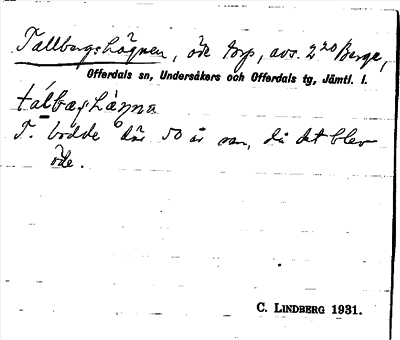 Tallbergshöguen, öde torp, avs. 2²⁰ Berge,
Offerdals sn, Undersåkers och Offerdals tg, Jämtl. l.
T. bodde där 50 år sen, då det blev
öde.
C. LINDBERG 1931.